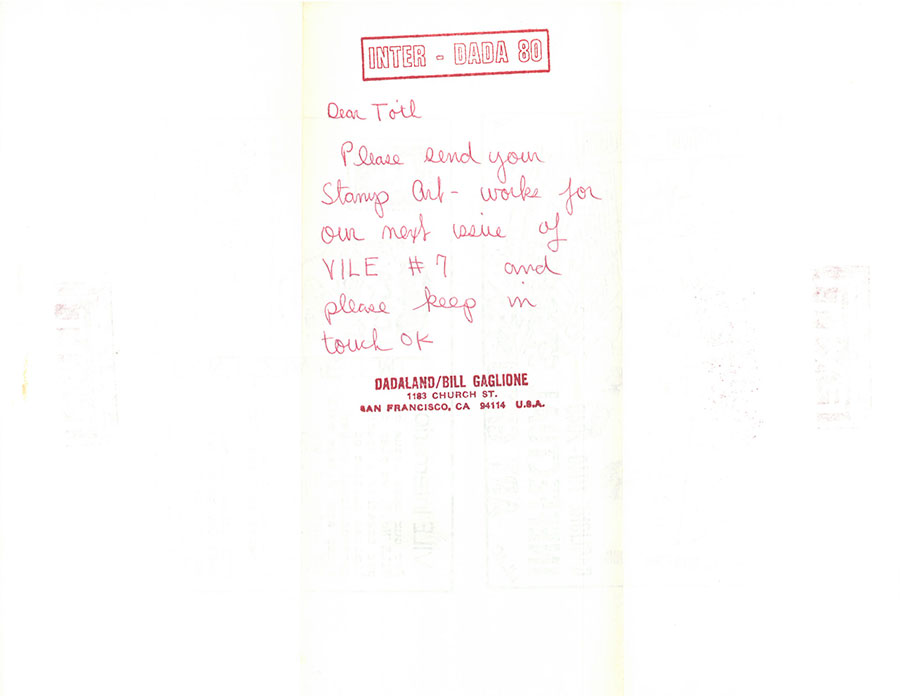 INTER - DADA 80
Dear Tótl
Please send your
Stamp Art - works for
our next issue of
VILE #7 and
please keep in
touch OK
DADALAND/BILL GAGLIONE
1183 CHURCH ST.
SAN FRANCISCO, CA 94114 U.S.A.